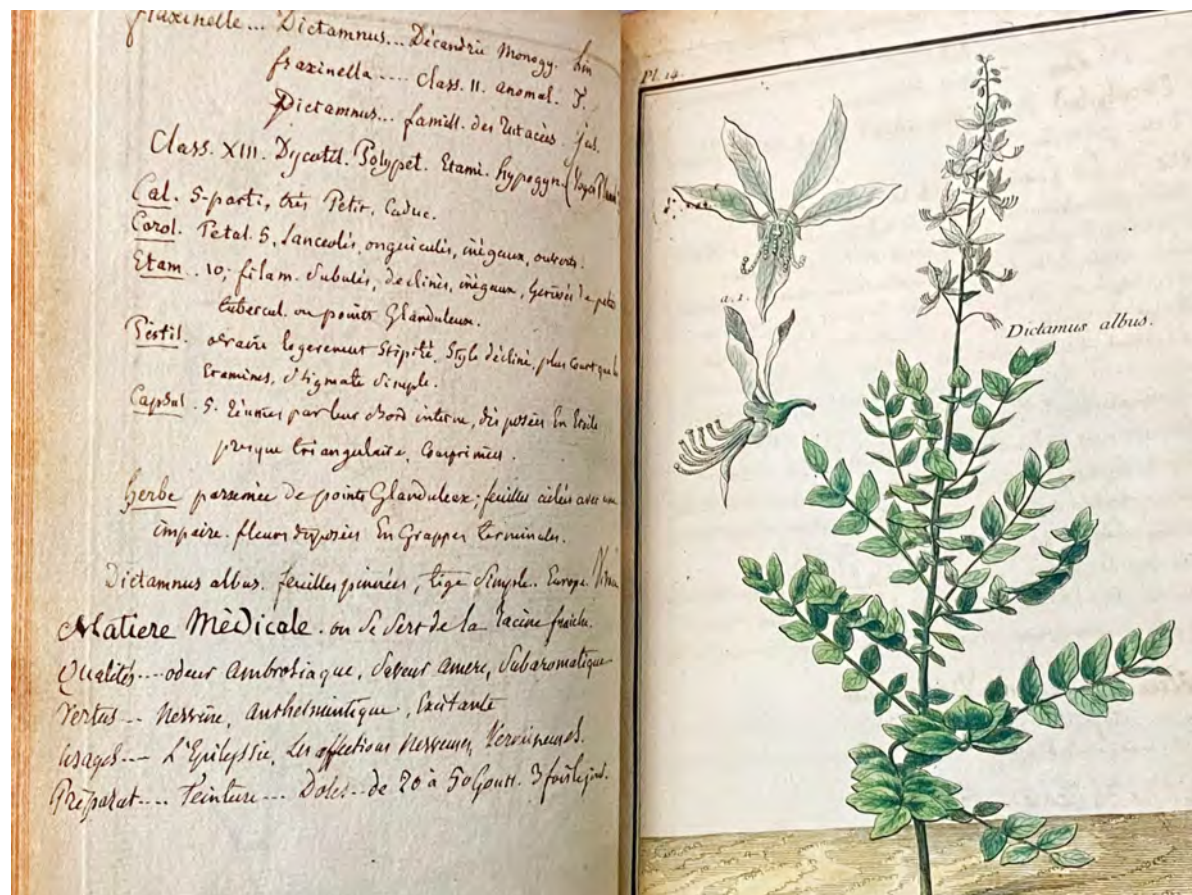 fraxinelle... Dictamnus... Décandrie Monogy. Lin
fraxinella..... Class. 11. anomal. T.
Dictamnus... famill. des Rutacées. Jus.
Class. XIII. Dycotil. Polypet. Etami. hypogyn. (Voyez
Cal. 5-parti, très Petit. Caduc.
Corol. Petal. 5. Lanceolés, onguiculés, inégaux, ouverts.
Etam. 10; filam. Subulés, déclinés, inégaux, herissés de petits
tubercul. ou points Glanduleux.
Pistil. ovaire legerement Stipité, Style décliné, plus court que
Etamines, Stigmate Simple.
Capsul. 5. réunies par leur Bord interne, disposées En Etoile
presque triangulaire, Comprimées.
herbe parsemée de points Glanduleux; feuilles ailées avec une
impaire. fleurs disposées En Grappes terminales.
Dictamnus albus. feuilles pinnées, tige Simple. Europe.
Matiere Médicale. on Se Sert de la racine fraiche.
Qualités.... odeur Ambrosiaque, Saveur amere, Subaromatique
Vertus... Nervine, Anthelmintique, Excitante
Usages.... L'Epilepsie, Les affections Nerveuses, Vermineuses.
Préparat.... Teinture.... Doses.. de 20 à 50 Goutt. 3 fois le jour.
Pl. 14.
a. 1.
Dictamus albus.